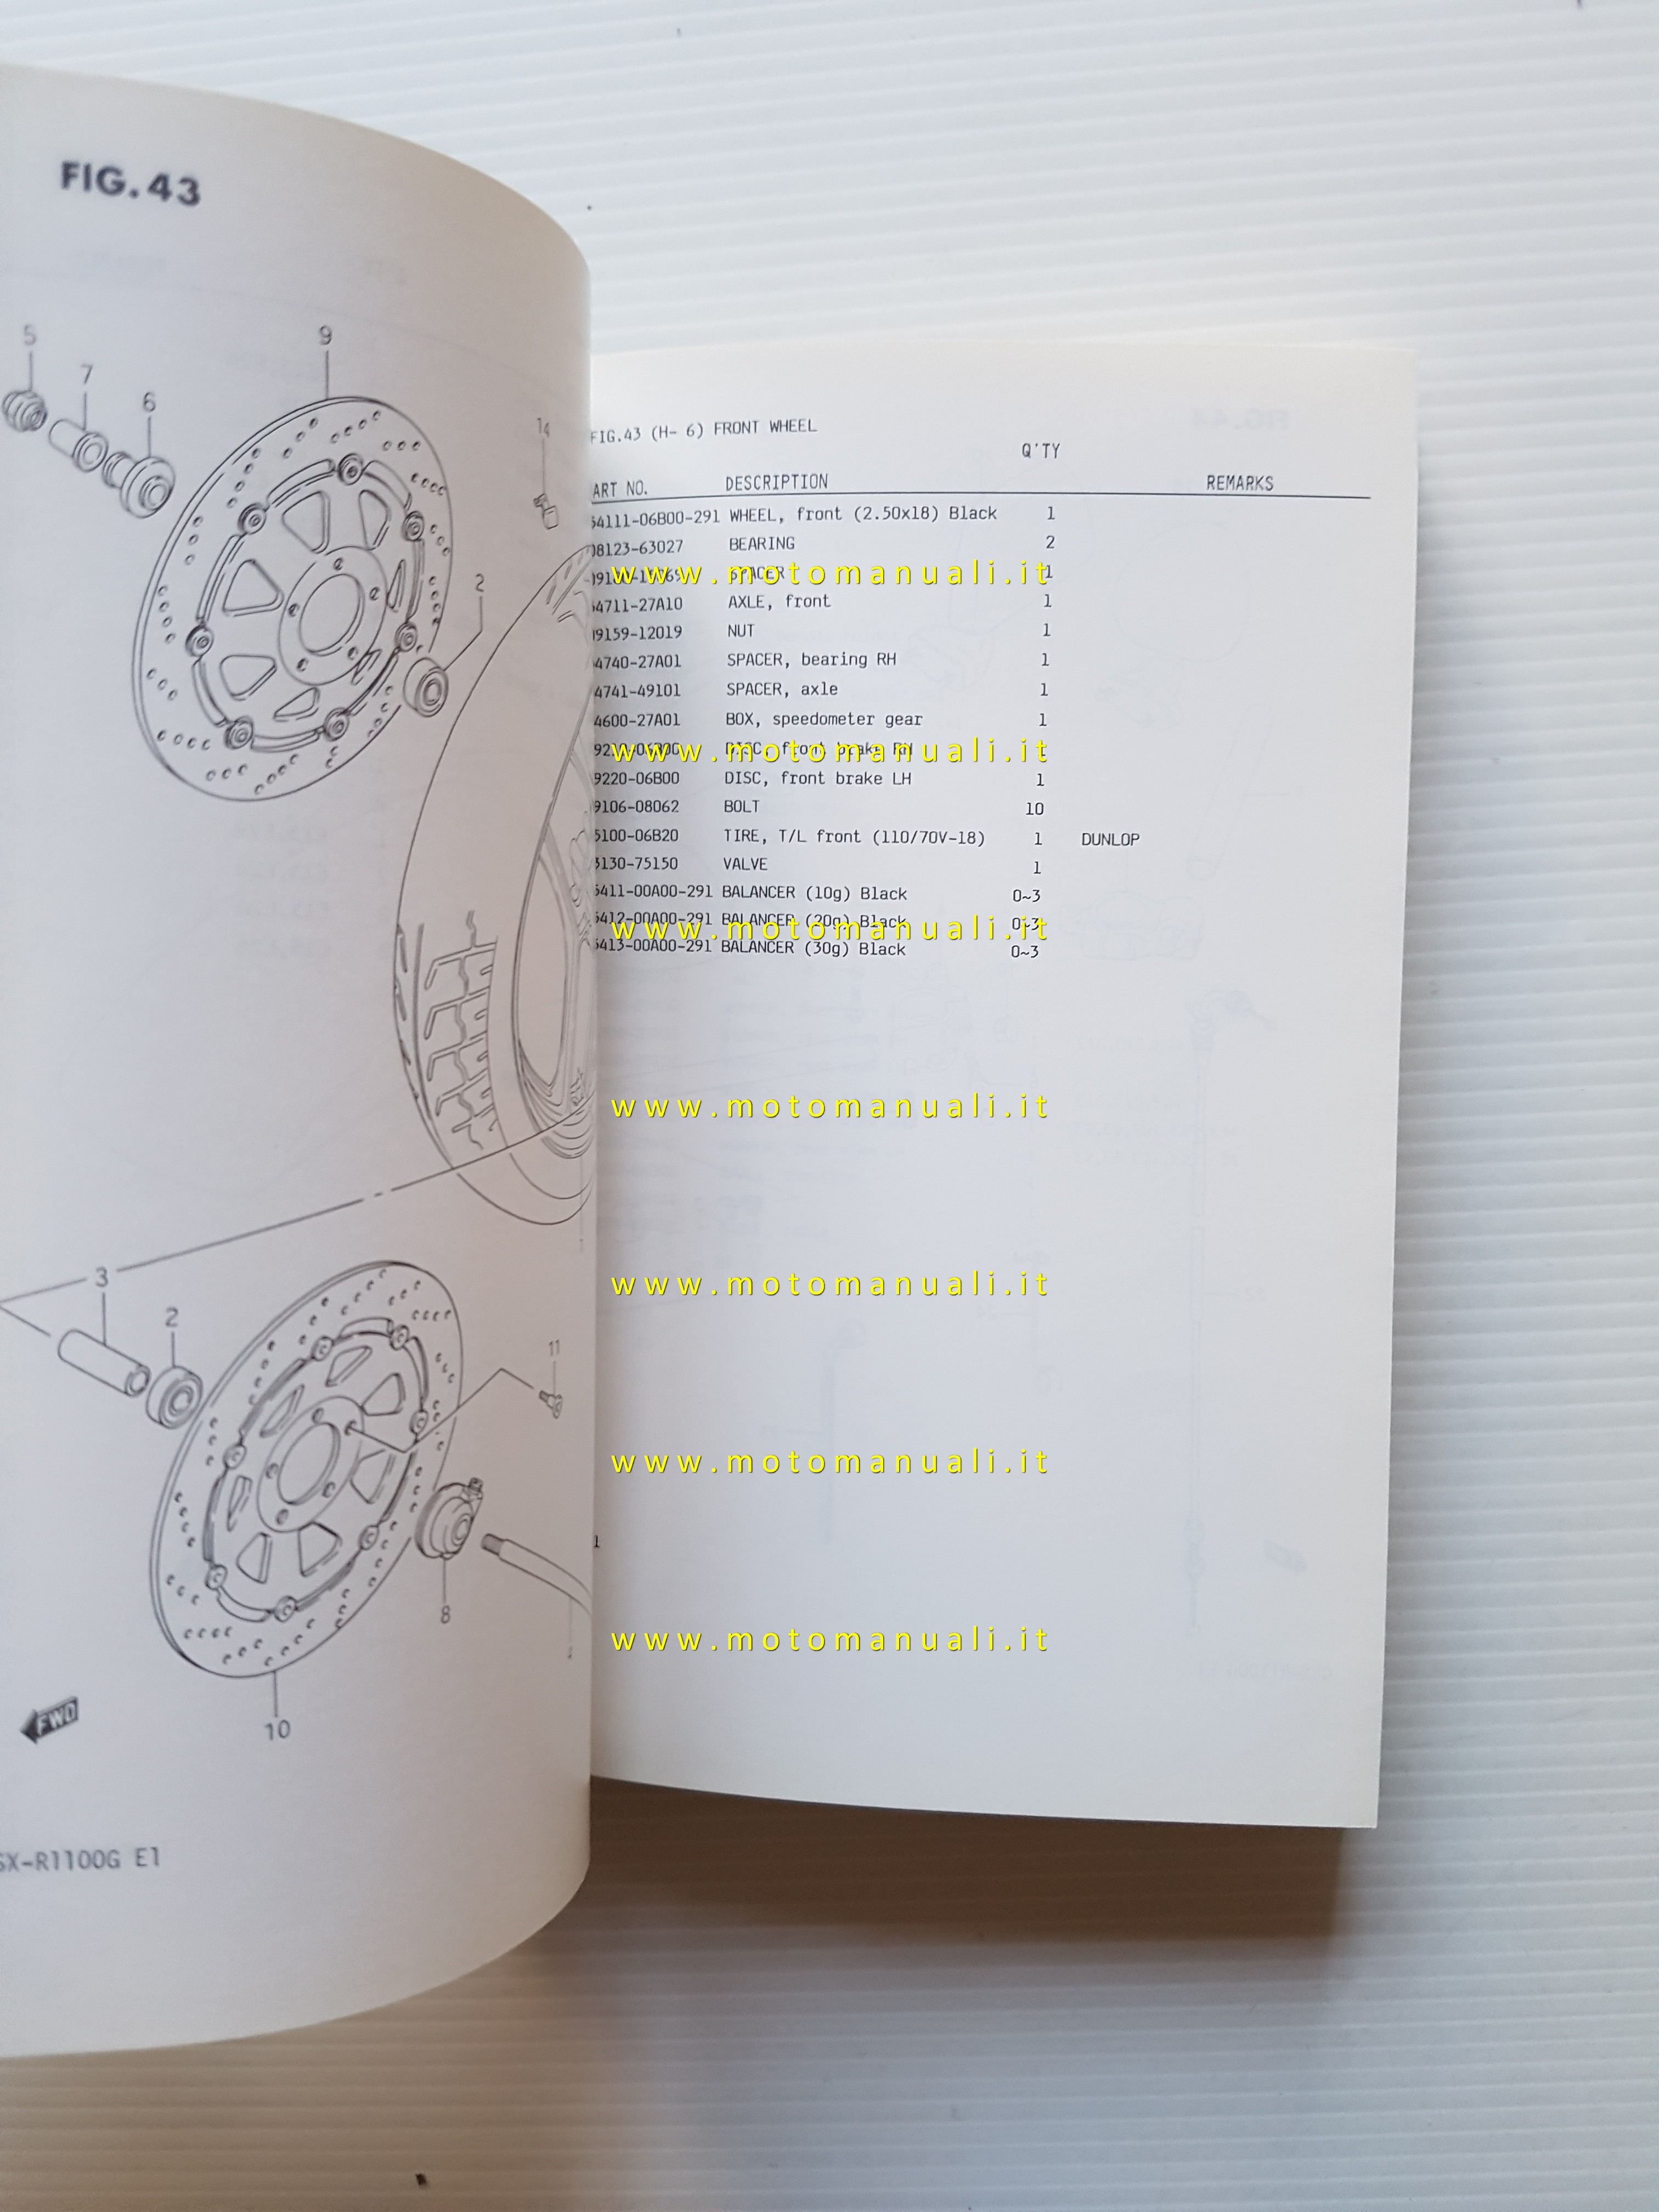 FIG.43
5
7
6
9
14
2
3
2
11
8
10
FWD
SX-R1100G E1
FIG.43 (H- 6) FRONT WHEEL
Q'TY
ART NO. DESCRIPTION REMARKS
54111-06B00-291 WHEEL, front (2.50x18) Black 1
08123-63027 BEARING 2
SPACER 1
54711-27A10 AXLE, front 1
09159-12019 NUT 1
4740-27A01 SPACER, bearing RH 1
4741-49101 SPACER, axle 1
4600-27A01 BOX, speedometer gear 1
DISC, front brake RH
9220-06B00 DISC, front brake LH 1
9106-08062 BOLT 10
5100-06B20 TIRE, T/L front (110/70V-18) 1 DUNLOP
3130-75150 VALVE 1
5411-00A00-291 BALANCER (10g) Black 0~3
5412-00A00-291 BALANCER (20g) Black 0~3
5413-00A00-291 BALANCER (30g) Black 0~3
www.motomanuali.it
www.motomanuali.it
www.motomanuali.it
www.motomanuali.it
www.motomanuali.it
www.motomanuali.it
www.motomanuali.it